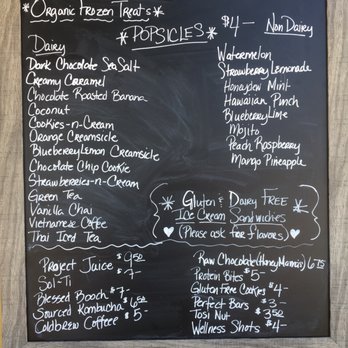 *Organic Frozen Treats*
*POPSICLES*
$4- Non Dairy
Dairy
Dark Chocolate Sea Salt
Creamy Caramel
Chocolate Roasted Banana
Coconut
Cookies-n-Cream
Orange Creamsicle
Blueberry Lemon Creamsicle
Chocolate Chip Cookie
Strawberries-n-Cream
Green Tea
Vanilla Chai
Vietnamese Coffee
Thai Iced Tea
Watermelon
Strawberry Lemonade
Honeydew Mint
Hawaiian Punch
Blueberry Lime
Mojito
Peach Raspberry
Mango Pineapple
Gluten & Dairy FREE
Ice Cream Sandwichies
(Please ask for flavors)
Project Juice $9.50
Sol-Ti $7-
Blessed Booch $7-
Sourced Kombucha $6.50
Coldbrew Coffee $5-
Raw Chocolate
Protein Bites $5-
Gluten Free Cookies $4-
Perfect Bars $3-
Tosi Nut $3.50
Wellness Shots $4-